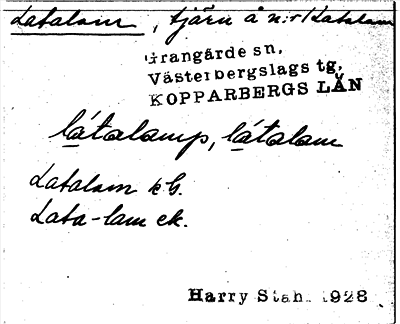 Latalam, tjärn å n:r 1 Latalam
Grangärde sn,
Västerbergslags tg,
KOPPARBERGS LÄN
látalamp, látalam
Latalam kb.
Lata-lam ek.
Harry Stah. 1928